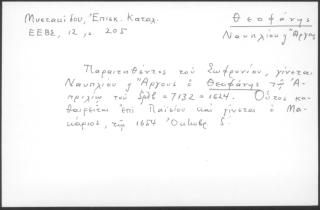 Μυστακίδου, Ἐπισκ. Καταλ.
ΕΕΒΣ, 12, σ. 205
Θεοφάνης
Ναυπλίου ἢ Ἄργους
Παραιτηθέντος τοῦ Σωφρονίου, γίνεται
Ναυπλίου ἢ Ἄργους ὁ Θεοφάνης τῇ Ἀ-
πριλίῳ τοῦ = 7132 = 1624. Οὗτος κα-
θαιρεῖται ἐπὶ Παϊσίου καὶ γίνεται ὁ Μα-
κάριος, τῇ 1654 Ὀκτωβρ 5.